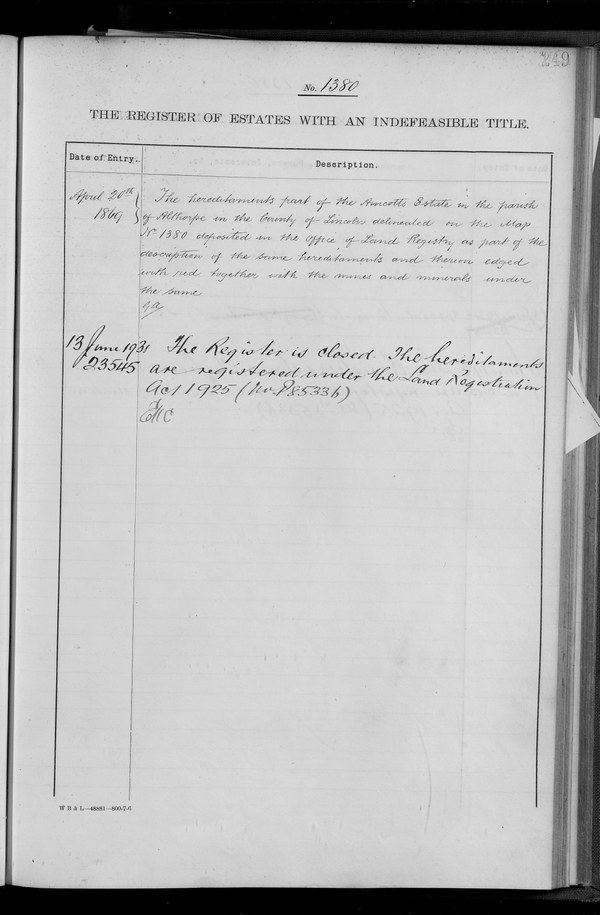 249
No. 1380
THE REGISTER OF ESTATES WITH AN INDEFEASIBLE TITLE.
Date of Entry.
Description.
April 20th
1869
The hereditaments part of the Amcotts Estate in the parish
of Althorpe in the County of Lincoln delineated on the Map
No 1380 deposited in the Office of Land Registry as part of the
description of the same hereditaments and therein edged
with red together with the mines and minerals under
the same
13 June 1931
23545
The Register is closed. The hereditaments
are registered under the Land Registration
Act 1925 (No. P85336)
W B & L—46883—800-7-6